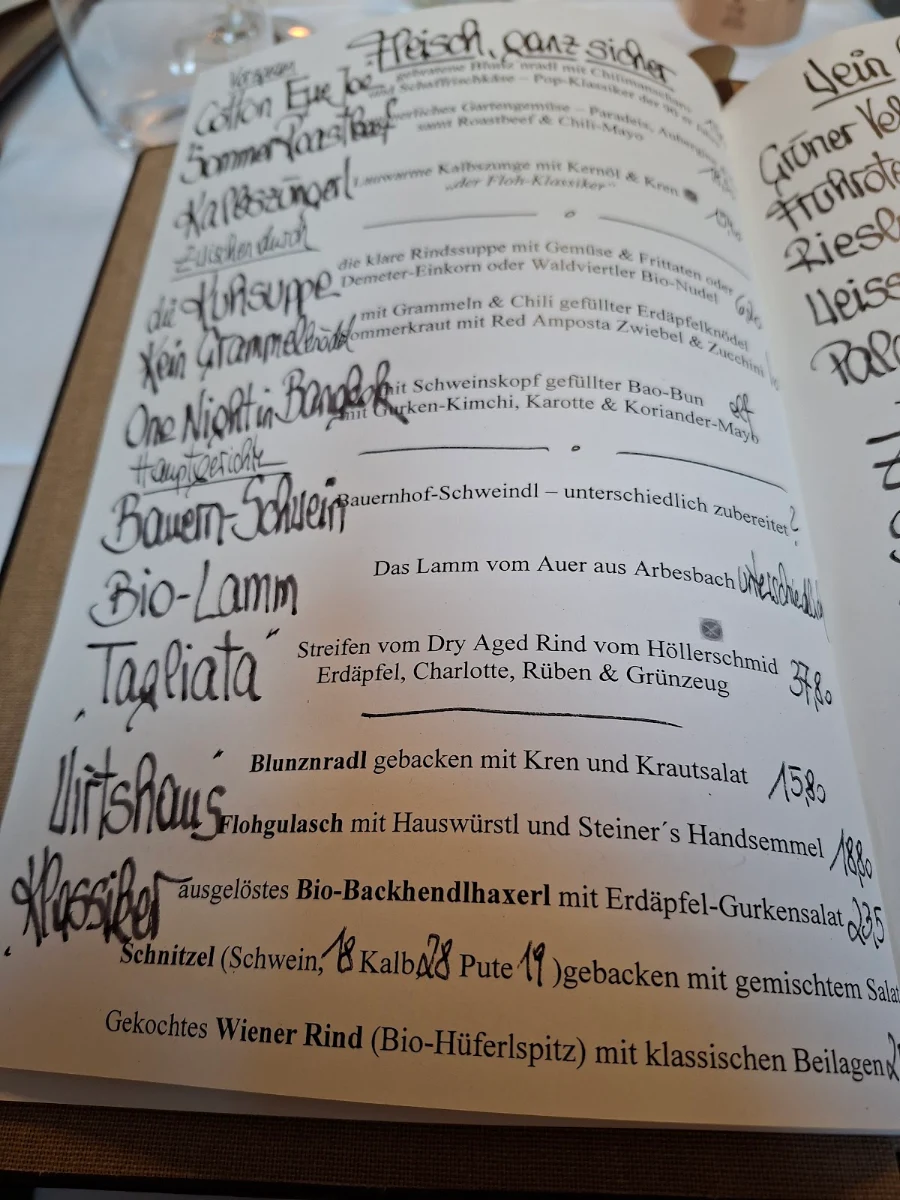 Fleisch, ganz sicher
Vorspeisen
Cotton Eye Joe gebratene Blunznradl mit Chilimarschans
und Schaffrischkäse – Pop-Klassiker der 90 er
Sommer Roastbeef Gartengemüse – Paradeis,
samt Roastbeef & Chili-Mayo
Kalbszüngerl Lauwarme Kalbszunge mit Kernöl & Kren
„der Floh-Klassiker“
Zwischendurch
die Kuhsuppe die klare Rindssuppe mit Gemüse & Frittaten oder
Demeter-Einkorn oder Waldviertler Bio-Nudel
Kein Grammelknödel mit Grammeln & Chili gefüllter Erdäpfelknödel
Sommerkraut mit Red Amposta Zwiebel & Zucchini
One Night in Bangkok mit Schweinskopf gefüllter Bao-Bun elf
mit Gurken-Kimchi, Karotte & Koriander-Mayo
Hauptgerichte
Bauern-Schwein Bauernhof-Schweindl – unterschiedlich zubereitet ?
Bio-Lamm Das Lamm vom Auer aus Arbesbach unterschiedlich
„Tagliata“ Streifen vom Dry Aged Rind vom Höllerschmid 37,80
Erdäpfel, Charlotte, Rüben & Grünzeug
Wirtshaus Klassiker
Blunznradl gebacken mit Kren und Krautsalat 15,80
Flohgulasch mit Hauswürstl und Steiner´s Handsemmel 18,80
ausgelöstes Bio-Backhendlhaxerl mit Erdäpfel-Gurkensalat 23,5
Schnitzel (Schwein, 18 Kalb 28 Pute 19 )gebacken mit gemischtem Salat
Gekochtes Wiener Rind (Bio-Hüferlspitz) mit klassischen Beilagen
Wein
Grüner Vel
Frührote
Riesl
Weiss